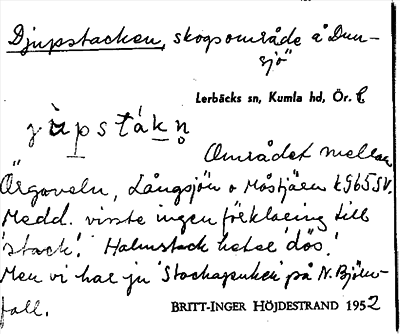 Djupstacken, skogsområde å Dun-
sjö"
Lerbäcks sn, Kumla hd, Ör. l
Området mellan
Örgaveln, Långsjön o Måstjärn
Medd. visste ingen förklaring till
'stack'. Halmstack hetse 'dös'.
Men vi har ju 'Stackapunken' på N. Björn-
fall.
BRITT-INGER HÖJDESTRAND 1952